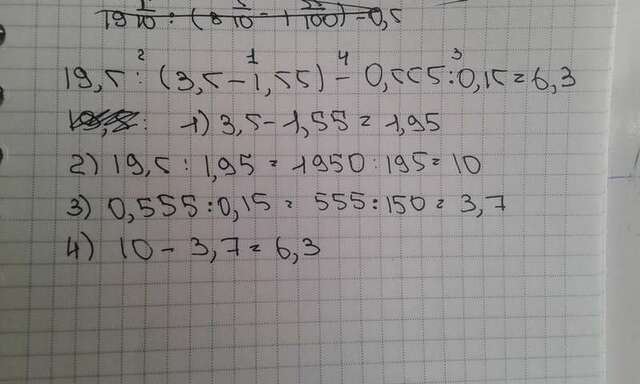 19,5 : (3,5 - 1,55) - 0,555 : 0,15 = 6,3
1) 3,5 - 1,55 = 1,95
2) 19,5 : 1,95 = 1950 : 195 = 10
3) 0,555 : 0,15 = 555 : 150 = 3,7
4) 10 - 3,7 = 6,3